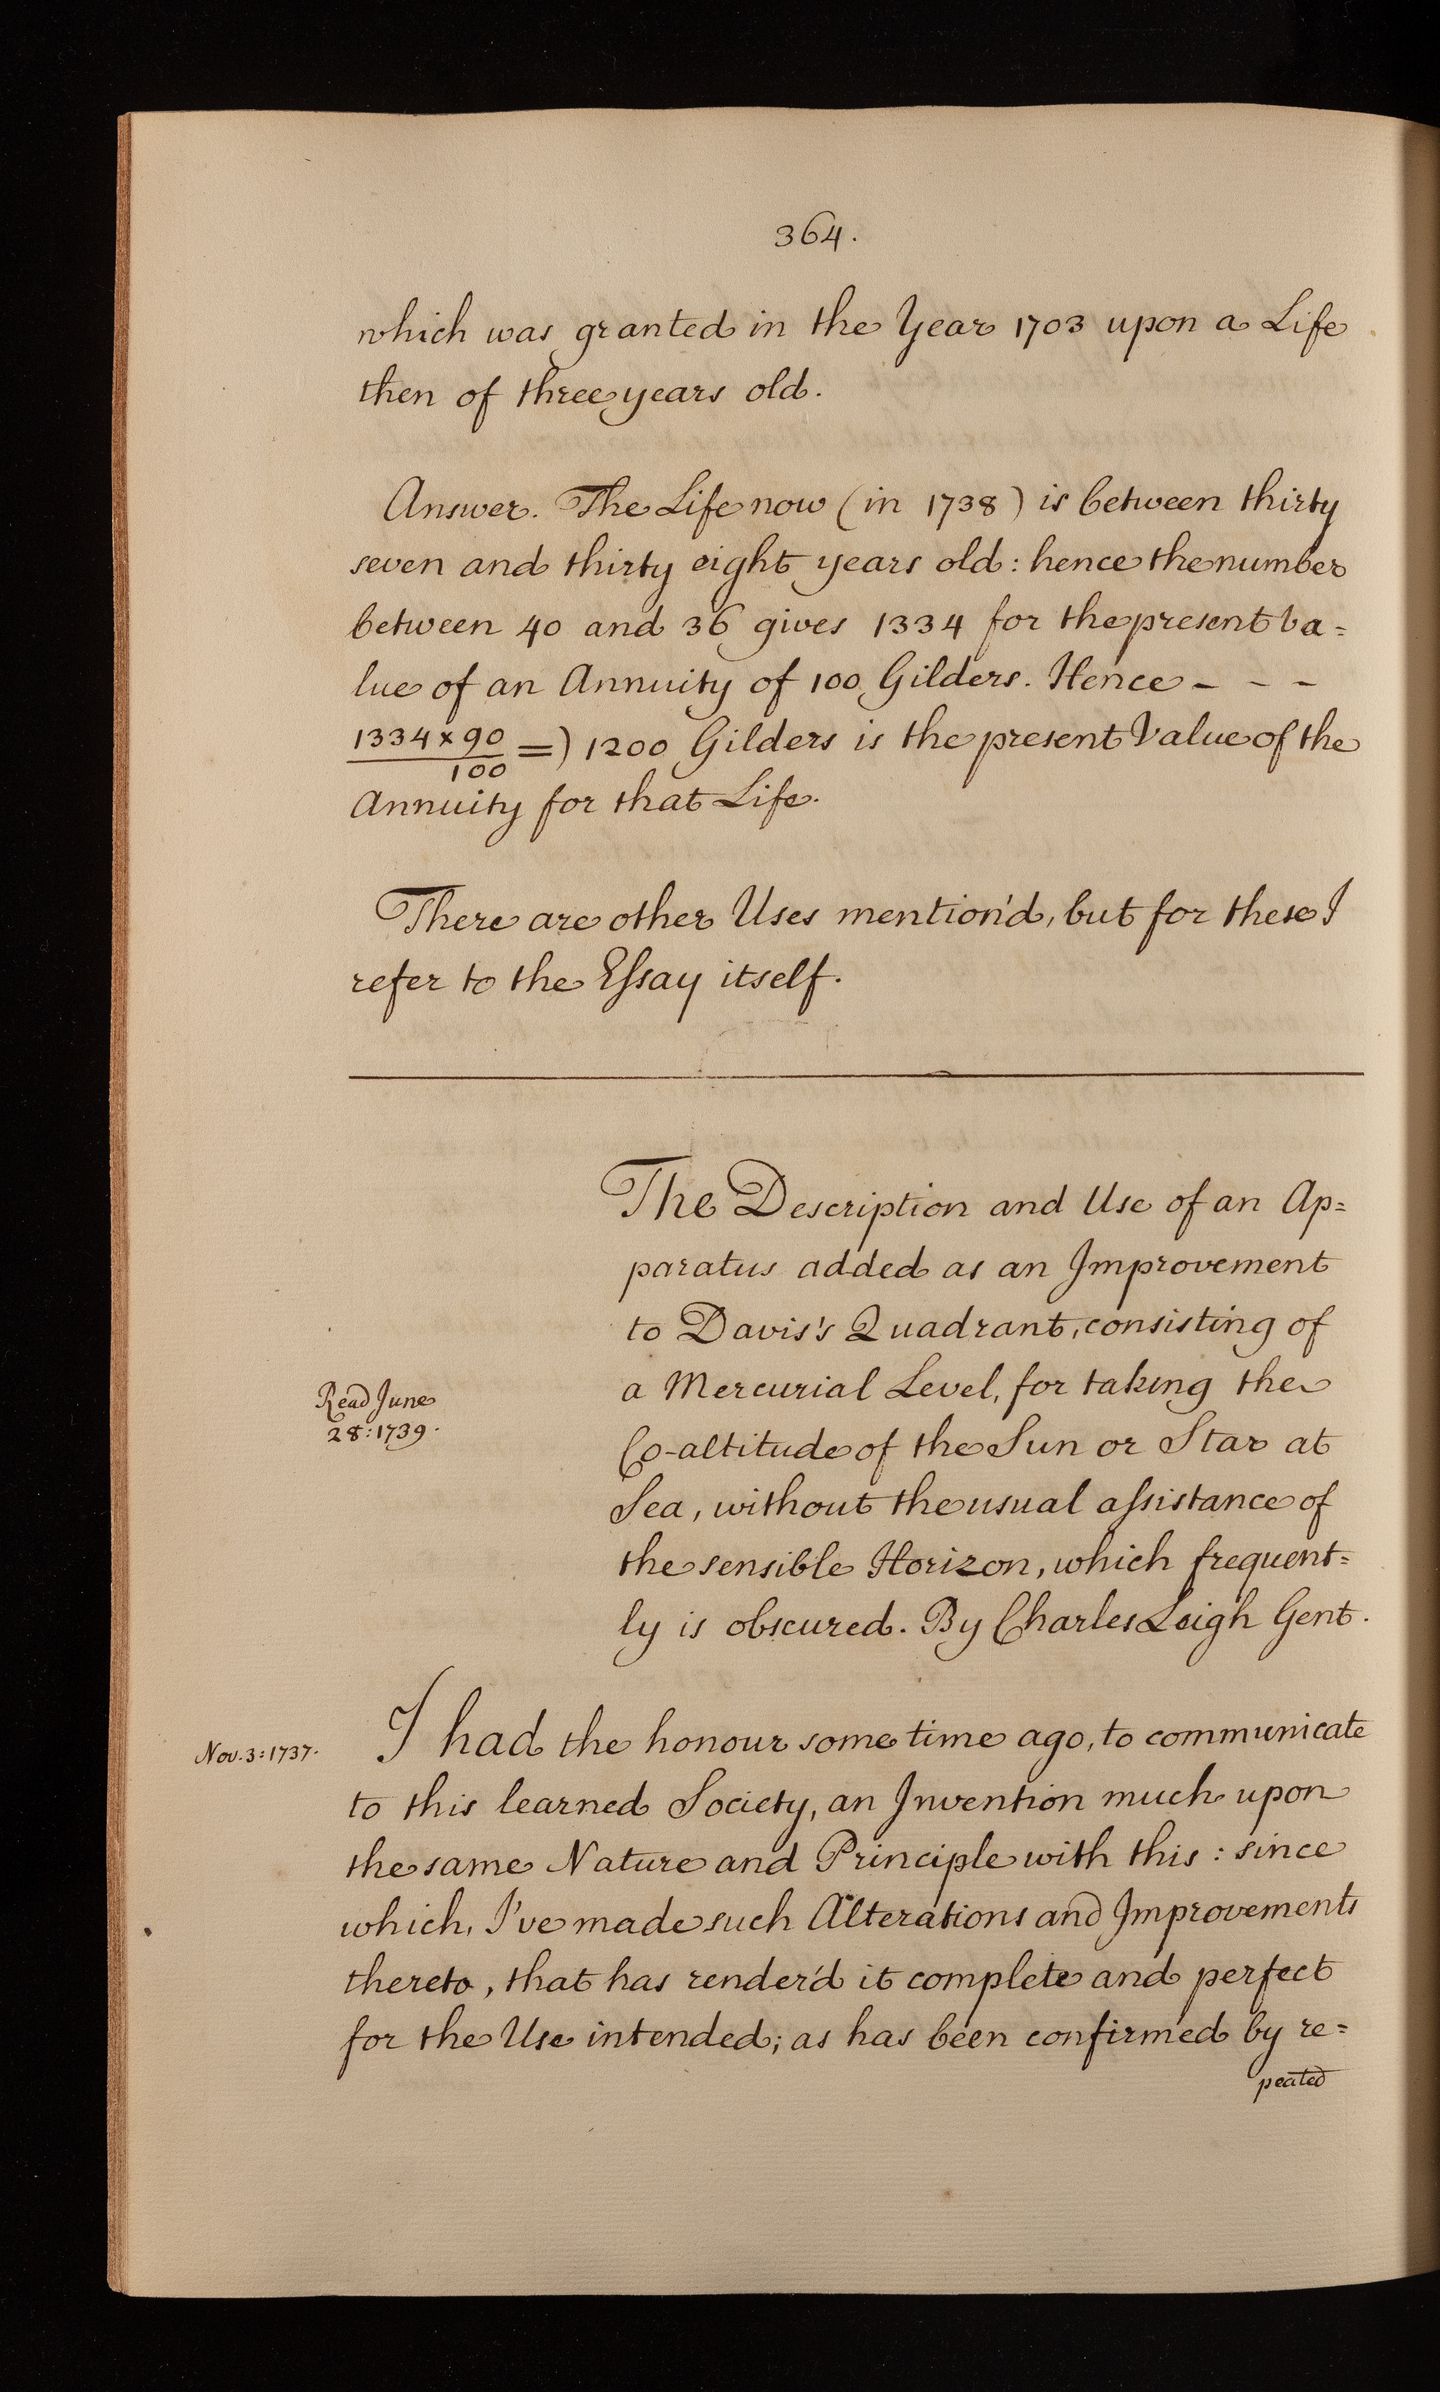 364.
which was granted in the Year 1703 upon a Life
then of three years old.
Answer. The Life now (in 1738) is between thirty
seven and thirty eight years old: hence the number
between 40 and 36 gives 1334 for the present va=
lue of an Annuity of 100 Gilders. Hence - - -
1334 x 90
100
=) 1200 Gilders is the present Value of the
Annuity for that Life.
There are other Uses mention'd, but for these I
refer to the Eſsay itself.
The Description and Use of an Ap=
paratus added as an Improvement
to Davis's Quadrant, consisting of
a Mercurial Level, for taking the
Read June
28: 1739.
Co-altitude of the Sun or Star at
Sea, without the usual aſsistance of
the sensible Horizon, which frequent=
ly is obscured. By Charles Leigh Gent.
Nov. 3: 1737.
I had the honour some time ago, to communicate
to this learned Society, an Invention much upon
the same Nature and Principle with this: since
which, I've made such Alterations and Improvements
thereto, that has render'd it complete and perfect
for the Use intended; as has been confirmed by re=
peated